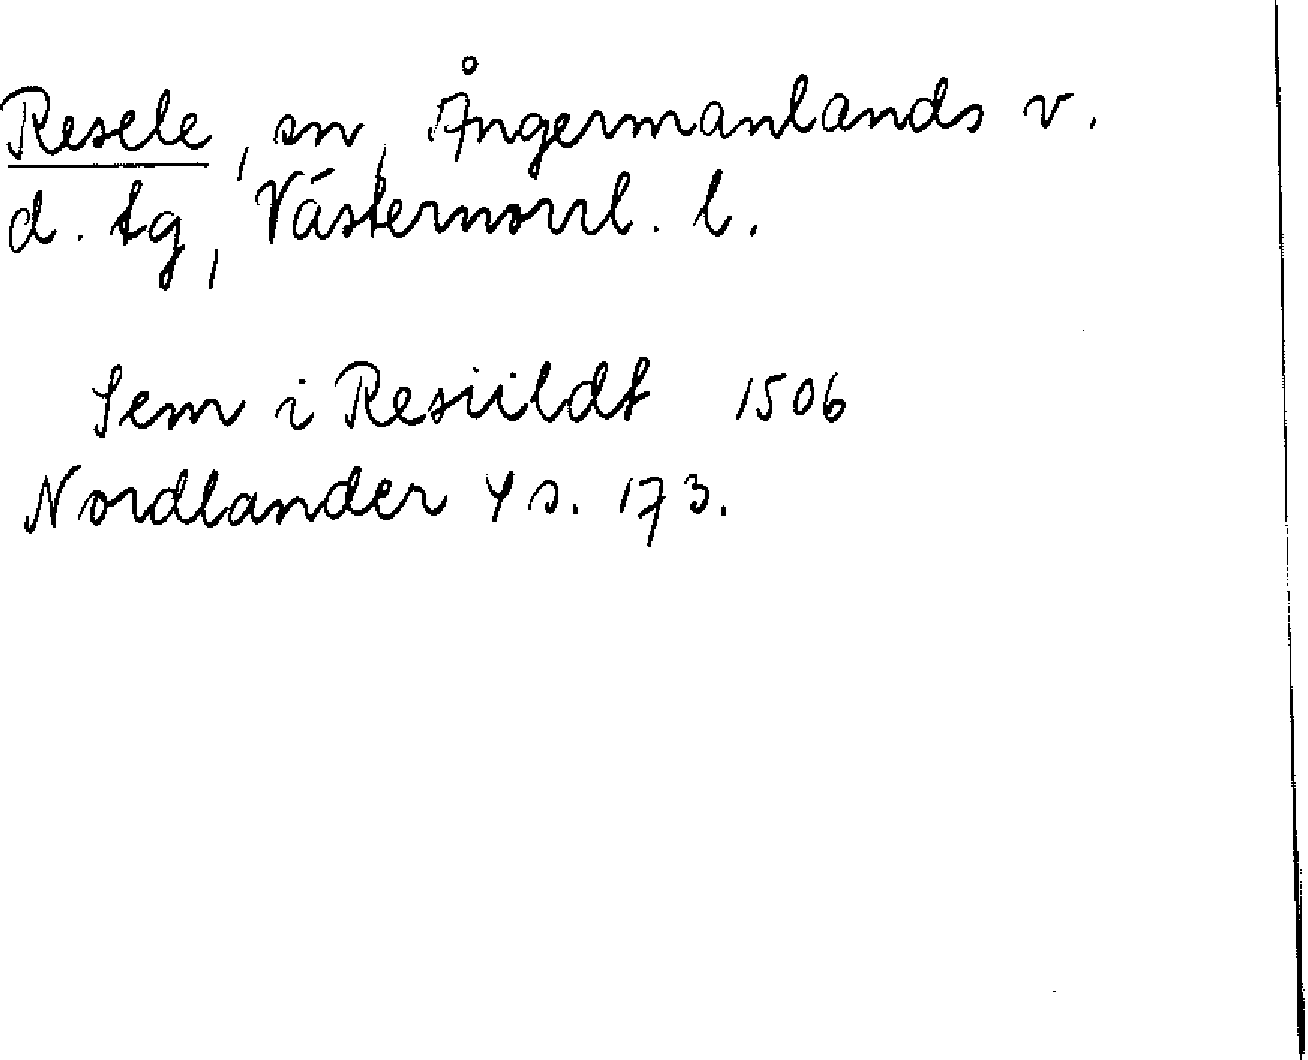 Resele, sn, Ångermanlands v.
d. tg, Västernorrl. l.
Sem i Resiildt 1506
Nordlander 4 s. 173.